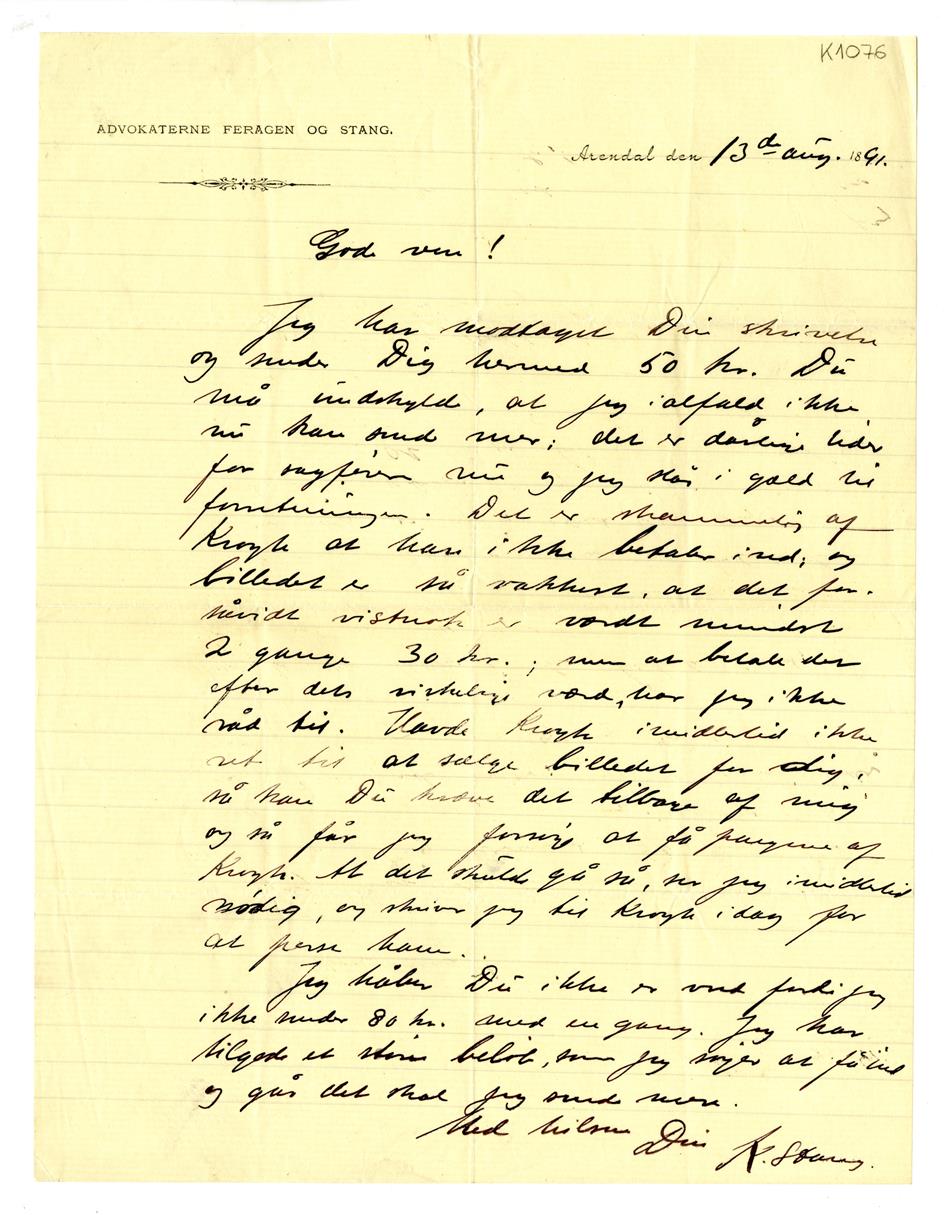 K1076
ADVOKATERNE FERAGEN OG STANG.
Arendal den 13de aug. 1891.
Gode ven!
Jeg har modtaget Din skrivelse
og sender Dig hermed 50 kr. Du
må undskylde, at jeg ialfald ikke
nu kan sende mer; det er dårlige tider
for sagførere nu og jeg står i gæld til
forretningen. Det er skammelig af
Krogh at han ikke betaler ind; og
billedet er så vakkert, at det for-
såvidt vistnok er værdt mindst
2 gange 30 kr.; men at betale det
efter dets virkelige værd, har jeg ikke
råd til. Havde Krogh imidlertid ikke
ret til at sælge billedet for dig,
så kan Du kræve det tilbage af mig
og så får jeg forsøge at få pengene af
Krogh. At det skulde gå så, ser jeg imidlertid
nødig, og skriver jeg til Krogh idag for
at perse ham.
Jeg håber Du ikke er vred fordi jeg
ikke sender 80 kr. med en gang. Jeg har
tilgode et større beløb, som jeg søger at få ind
og går det skal jeg sende mere.
Med hilsen Din K. Stang.